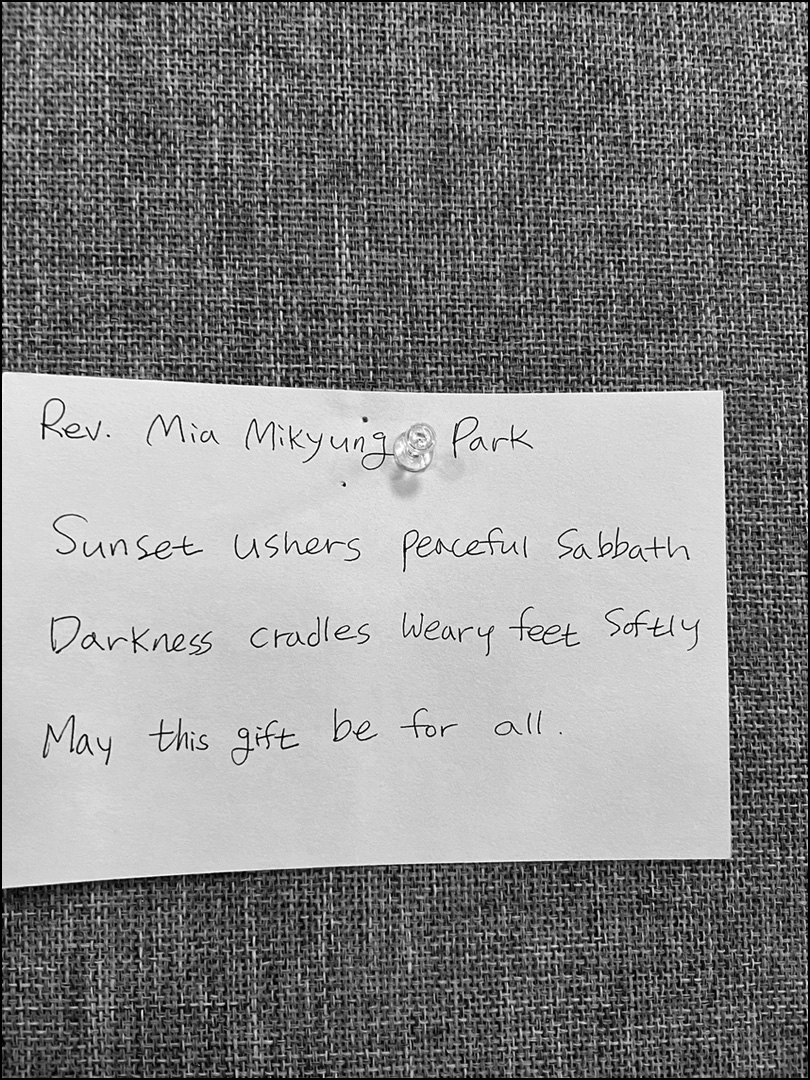 Rev. Mia Mikyung Park
Sunset ushers peaceful Sabbath
Darkness cradles weary feet softly
May this gift be for all.